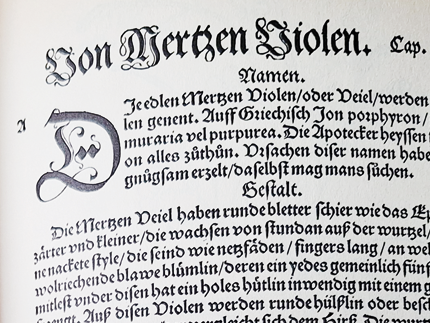 Von Mertzen Violen. Cap.
Namen.
A
Die edlen Mertzen Violen/oder Veiel/werden
len genent. Auff Griechisch Jon porphyron/
muraria vel purpurea. Die Apotecker heyssen
on alles zůthůn. Vrsachen diser namen habe
gnůgsam erzelt/daselbst mag mans sůchen.
Gestalt.
Die Mertzen Veiel haben runde bletter schier wie das
zårter vnd kleiner/die wachsen von stundan auß der wurtzel/
ne nackete style/die seind wie netzfåden/fingers lang/an wel
wolriechende blawe blůmlin/deren ein yedes gemeinlich fünf
mitlest vnder disen hat ein holes hůtlin inwendig mit einem g
gengt. Auß disen Violen werden runde hülßlin oder besch
vergleicht sich dem Hirß. Die wur